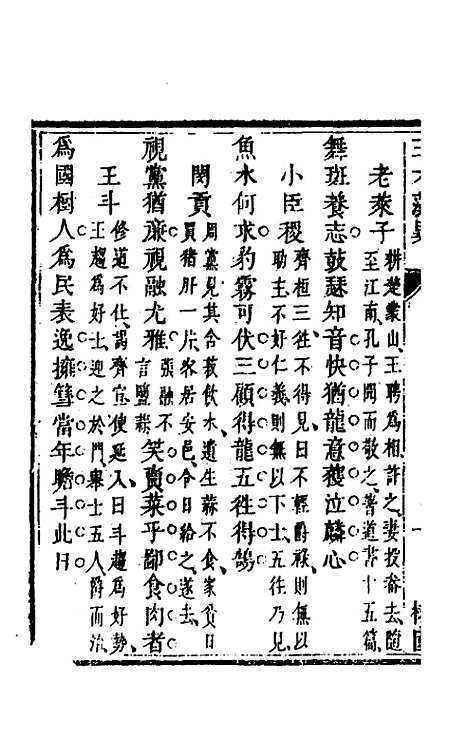 老萊子
耕楚蒙山王聘爲相許之妻投畚去隨
至江南孔子聞而敬之著道書十五篇
舞班養志鼓瑟知音快猶龍意獲泣麟心
小臣稷
齊桓三往不得見曰不輕爵祿則無以
助主不好仁義則無以下士五往乃見
魚水何求豹霧可伏三顧得龍五往得鵠
閔貢
周黨見其含菽飲水遺生蒜不食家貧日
買猪肝一片客居安邑令日給之遂去
視黨猶廉視融尤雅
張融不
言鹽蒜
笑賣菜乎鄙食肉者
王斗
修道不仕謁齊宣使延入曰斗趨爲好勢
王趨爲好士迎之於門舉士五人爵而治
爲國樹人爲民表逸擁篲當年瞻斗此日